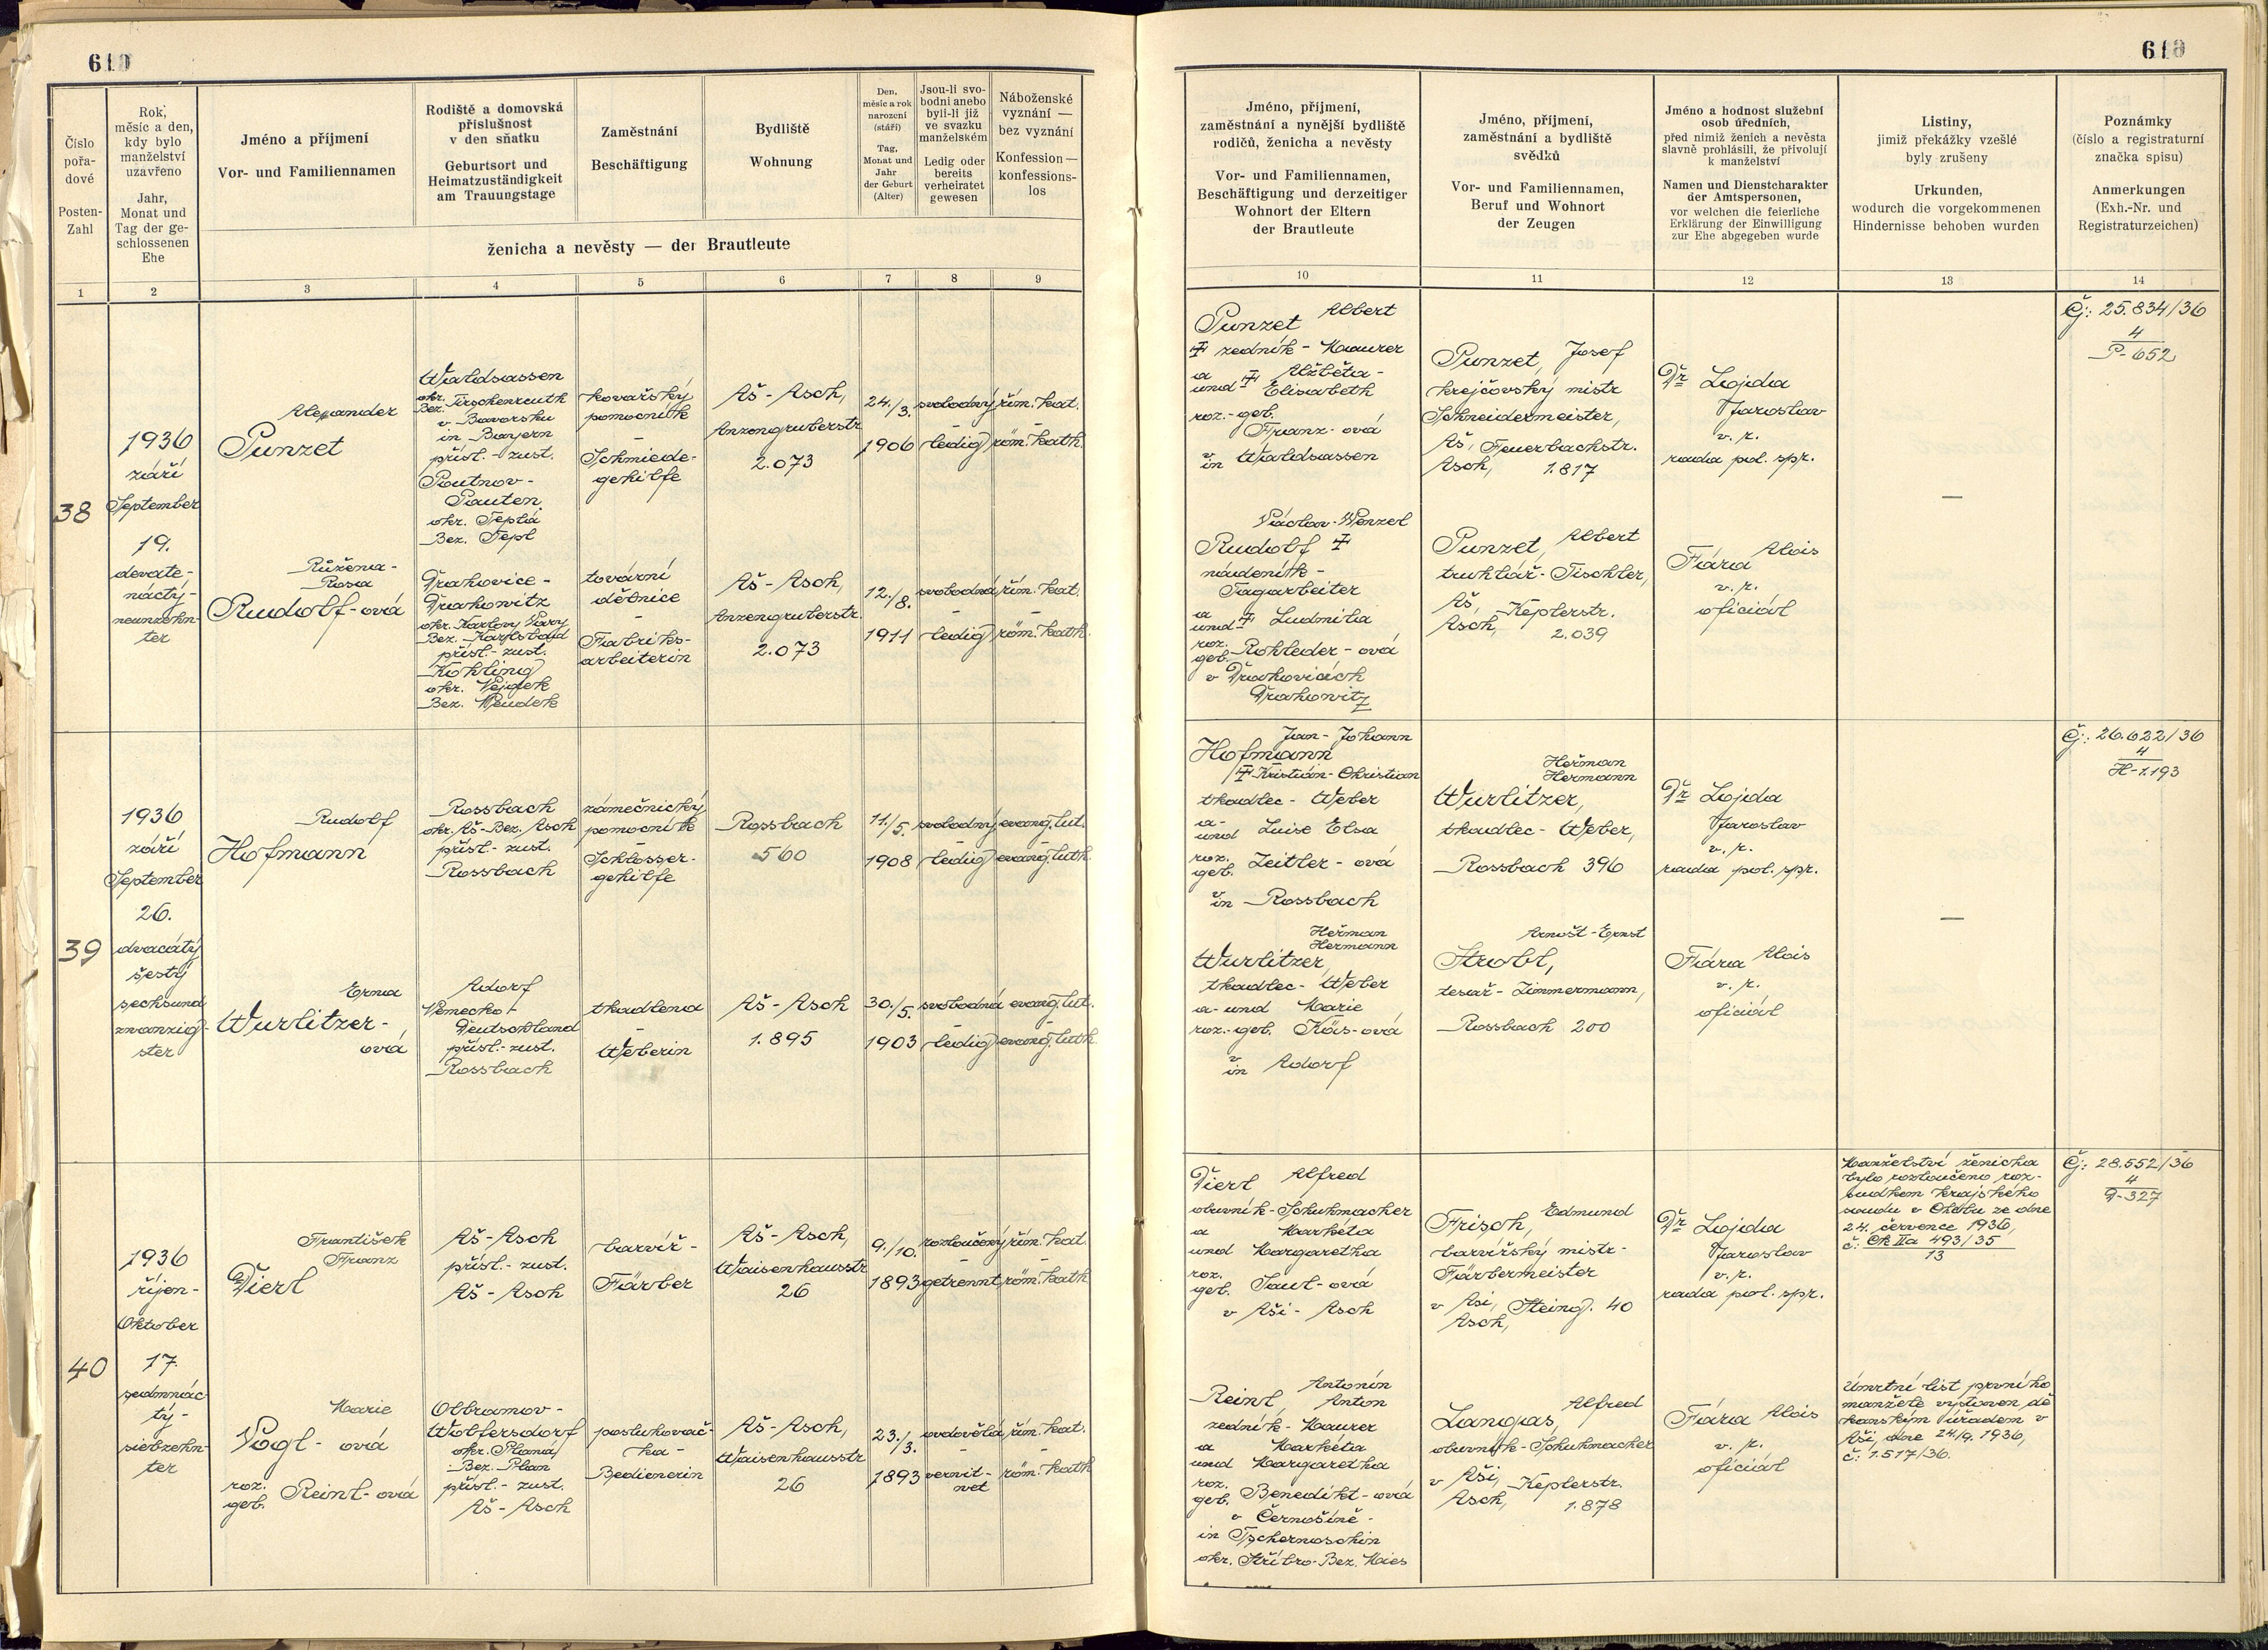 610
Číslo
pořa-
dové
Posten-
Zahl
Rok,
měsíc a den,
kdy bylo
manželství
uzavřeno
Jahr,
Monat und
Tag der ge-
schlossenen
Ehe
Jméno a příjmení
Vor- und Familiennamen
Rodiště a domovská
příslušnost
v den sňatku
Geburtsort und
Heimatzuständigkeit
am Trauungstage
Zaměstnání
Beschäftigung
Bydliště
Wohnung
Den,
měsíc a rok
narození
(stáří)
Tag,
Monat und
Jahr
der Geburt
(Alter)
Jsou-li svo-
bodni anebo
byli-li již
ve svazku
manželském
Ledig oder
bereits
verheiratet
gewesen
Náboženské
vyznání —
bez vyznání
Konfession —
konfessions-
los
ženicha a nevěsty — der Brautleute
1 2 3 4 5 6 7 8 9
38
1936
září
September
19.
devate-
náctý-
neunzehn-
ter
Alexander
Punzet
Waldsassen
okr. Tirschenreuth
Bez.
v Bavorsku
in Bayern
přísl. - zust.
Poutnov -
Pauten
okr. Teplá
Bez. Tepl
kovářský
pomocník
-
Schmiede-
gehilfe
Aš - Asch,
Anzengruberstr.
2.073
24./3.
1906
svobodný
-
ledig
řím. kat.
-
röm. kath.
Růžena -
Rosa
Rudolf - ová
Drahovice -
Drahowitz
okr. Karlovy Vary
Bez. Karlsbad
přísl. - zust.
Kohling
okr. Nejdek
Bez. Neudek
tovární
dělnice
-
Fabriks-
arbeiterin
Aš - Asch,
Anzengruberstr.
2.073
12./8.
1911
svobodná
-
ledig
řím. kat.
-
röm. kath.
39
1936
září
September
26.
dvacátý
šestý
sechsund
zwanzig-
ster
Rudolf
Hofmann
Rossbach
okr. Aš - Bez. Asch
přísl. - zust.
Rossbach
zámečnický
pomocník
-
Schlosser-
gehilfe
Rossbach
560
11./5.
1908
svobodný
-
ledig
evang. lut.
-
evang. luth.
Erna
Wurlitzer -
ová
Adorf
Německo -
Deutschland
přísl. - zust.
Rossbach
tkadlena
-
Weberin
Aš - Asch
1.895
30./5.
1903
svobodná
-
ledig
evang. lut.
-
evang. luth.
40
1936
říjen -
Oktober
17.
sedmnác
tý -
siebzehn-
ter
František
Franz
Dierl
Aš - Asch
přísl. - zust.
Aš - Asch
barvíř -
Färber
Aš - Asch,
Waisenhausstr.
26
9./10.
1893
rozloučený
-
getrennt
řím. kat.
-
röm. kath.
Marie
Vogl - ová
roz.
geb. Reinl - ová
Olbramov -
Wolfersdorf
okr. Planá
Bez. Plan
přísl. - zust.
Aš - Asch
posluhovač-
ka -
Bedienerin
Aš - Asch,
Waisenhausstr.
26
23./3.
1893
ovdovělá
-
verwit-
wet
řím. kat.
-
röm. kath.
610
Jméno, příjmení,
zaměstnání a nynější bydliště
rodičů, ženicha a nevěsty
Vor- und Familiennamen,
Beschäftigung und derzeitiger
Wohnort der Eltern
der Brautleute
Jméno, příjmení,
zaměstnání a bydliště
svědků
Vor- und Familiennamen,
Beruf und Wohnort
der Zeugen
Jméno a hodnost služební
osob úředních,
před nimiž ženich a nevěsta
slavně prohlásili, že přivolují
k manželství
Namen und Dienstcharakter
der Amtspersonen,
vor welchen die feierliche
Erklärung der Einwilligung
zur Ehe abgegeben wurde
Listiny,
jimiž překážky vzešlé
byly zrušeny
Urkunden,
wodurch die vorgekommenen
Hindernisse behoben wurden
Poznámky
(číslo a registraturní
značka spisu)
Anmerkungen
(Exh.-Nr. und
Registraturzeichen)
10 11 12 13 14
Albert
Punzet
† zedník - Maurer
a
und † Alžběta -
Elisabeth
roz. - geb.
Franz - ová
v
in Waldsassen
Punzet, Josef
krejčovský mistr
Schneidermeister,
Aš, Feuerbachstr.
Asch, 1.817
Dr Lojda
Jaroslav
v. r.
rada pol. spr.
—
Čj: 25.834/36
4
P - 652
Václav - Wenzel
Rudolf †
nádeník -
Tagarbeiter
a
und † Ludmila
roz.
geb. Rohleder - ová
v Drahovicích
Drahowitz
Punzet, Albert
truhlář - Tischler,
Aš,
Asch, Keplerstr.
2.039
Fára Alois
v. r.
oficiál
Jan - Johann
Hofmann
† Kristián - Christian
tkadlec - Weber
a -
und Luise Elsa
roz.
geb. Zeitler - ová
v
in Rossbach
Heřman
Hermann
Wurlitzer,
tkadlec - Weber,
Rossbach 396
Dr Lojda
Jaroslav
v. r.
rada pol. spr.
—
Čj: 26.622/36
4
H - 1.193
Heřman
Hermann
Wurlitzer,
tkadlec - Weber
a - und Marie
roz. - geb. Käs - ová
v
in Adorf
Arnošt - Ernst
Strobl,
tesař - Zimmermann,
Rossbach 200
Fára Alois
v. r.
oficiál
Dierl Alfred
obuvník - Schuhmacher
a Markéta
und Margaretha
roz.
geb. Saul - ová
v Aši - Asch
Frisch, Edmund
barvířský mistr -
Färbermeister
v Aši, Steing. 40
Asch,
Dr Lojda
Jaroslav
v. r.
rada pol. spr.
Manželství ženicha
bylo rozloučeno roz-
sudkem krajského
soudu v Chebu ze dne
24. července 1936,
č: Ck IIa 493/35
13
Čj: 28.552/36
4
D - 327
Antonín
Reinl Anton
zedník - Maurer
a Markéta
und Margaretha
roz.
geb. Benedikt - ová
v Černošíně -
in Tschernoschin
okr. Stříbro - Bez. Mies
Alfred
Langas,
obuvník - Schuhmacher
v Aši, Keplerstr.
Asch, 1.878
Fára Alois
v. r.
oficiál
Úmrtní list prvního
manžela vystaven dě
kanským úřadem v
Aši, dne 24./9. 1936,
č: 1.517/36.